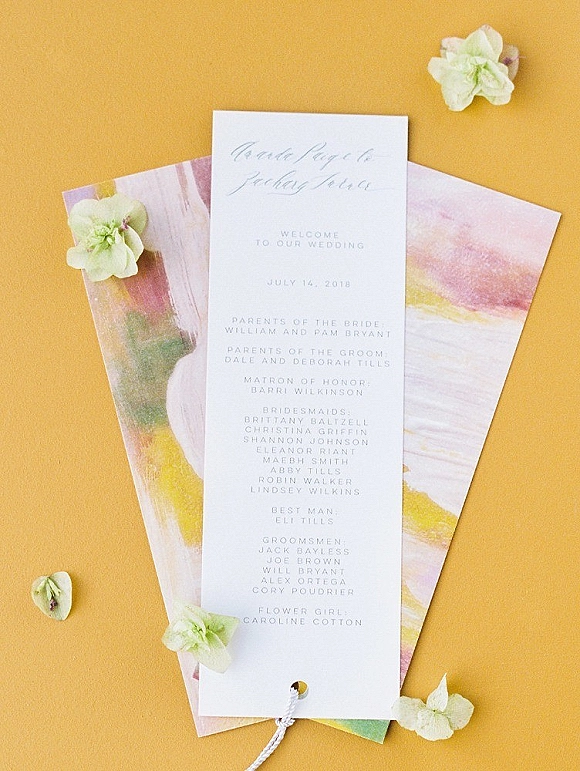 Amanda Paige to
Zachary Turner
WELCOME
TO OUR WEDDING
JULY 14, 2018
PARENTS OF THE BRIDE:
WILLIAM AND PAM BRYANT
PARENTS OF THE GROOM:
DALE AND DEBORAH TILLS
MATRON OF HONOR:
BARRI WILKINSON
BRIDESMAIDS:
BRITTANY BALTZELL
CHRISTINA GRIFFIN
SHANNON JOHNSON
ELEANOR RIANT
MAEBH SMITH
ABBY TILLS
ROBIN WALKER
LINDSEY WILKINS
BEST MAN:
ELI TILLS
GROOMSMEN:
JACK BAYLESS
JOE BROWN
WILL BRYANT
ALEX ORTEGA
CORY POUDRIER
FLOWER GIRL:
CAROLINE COTTON